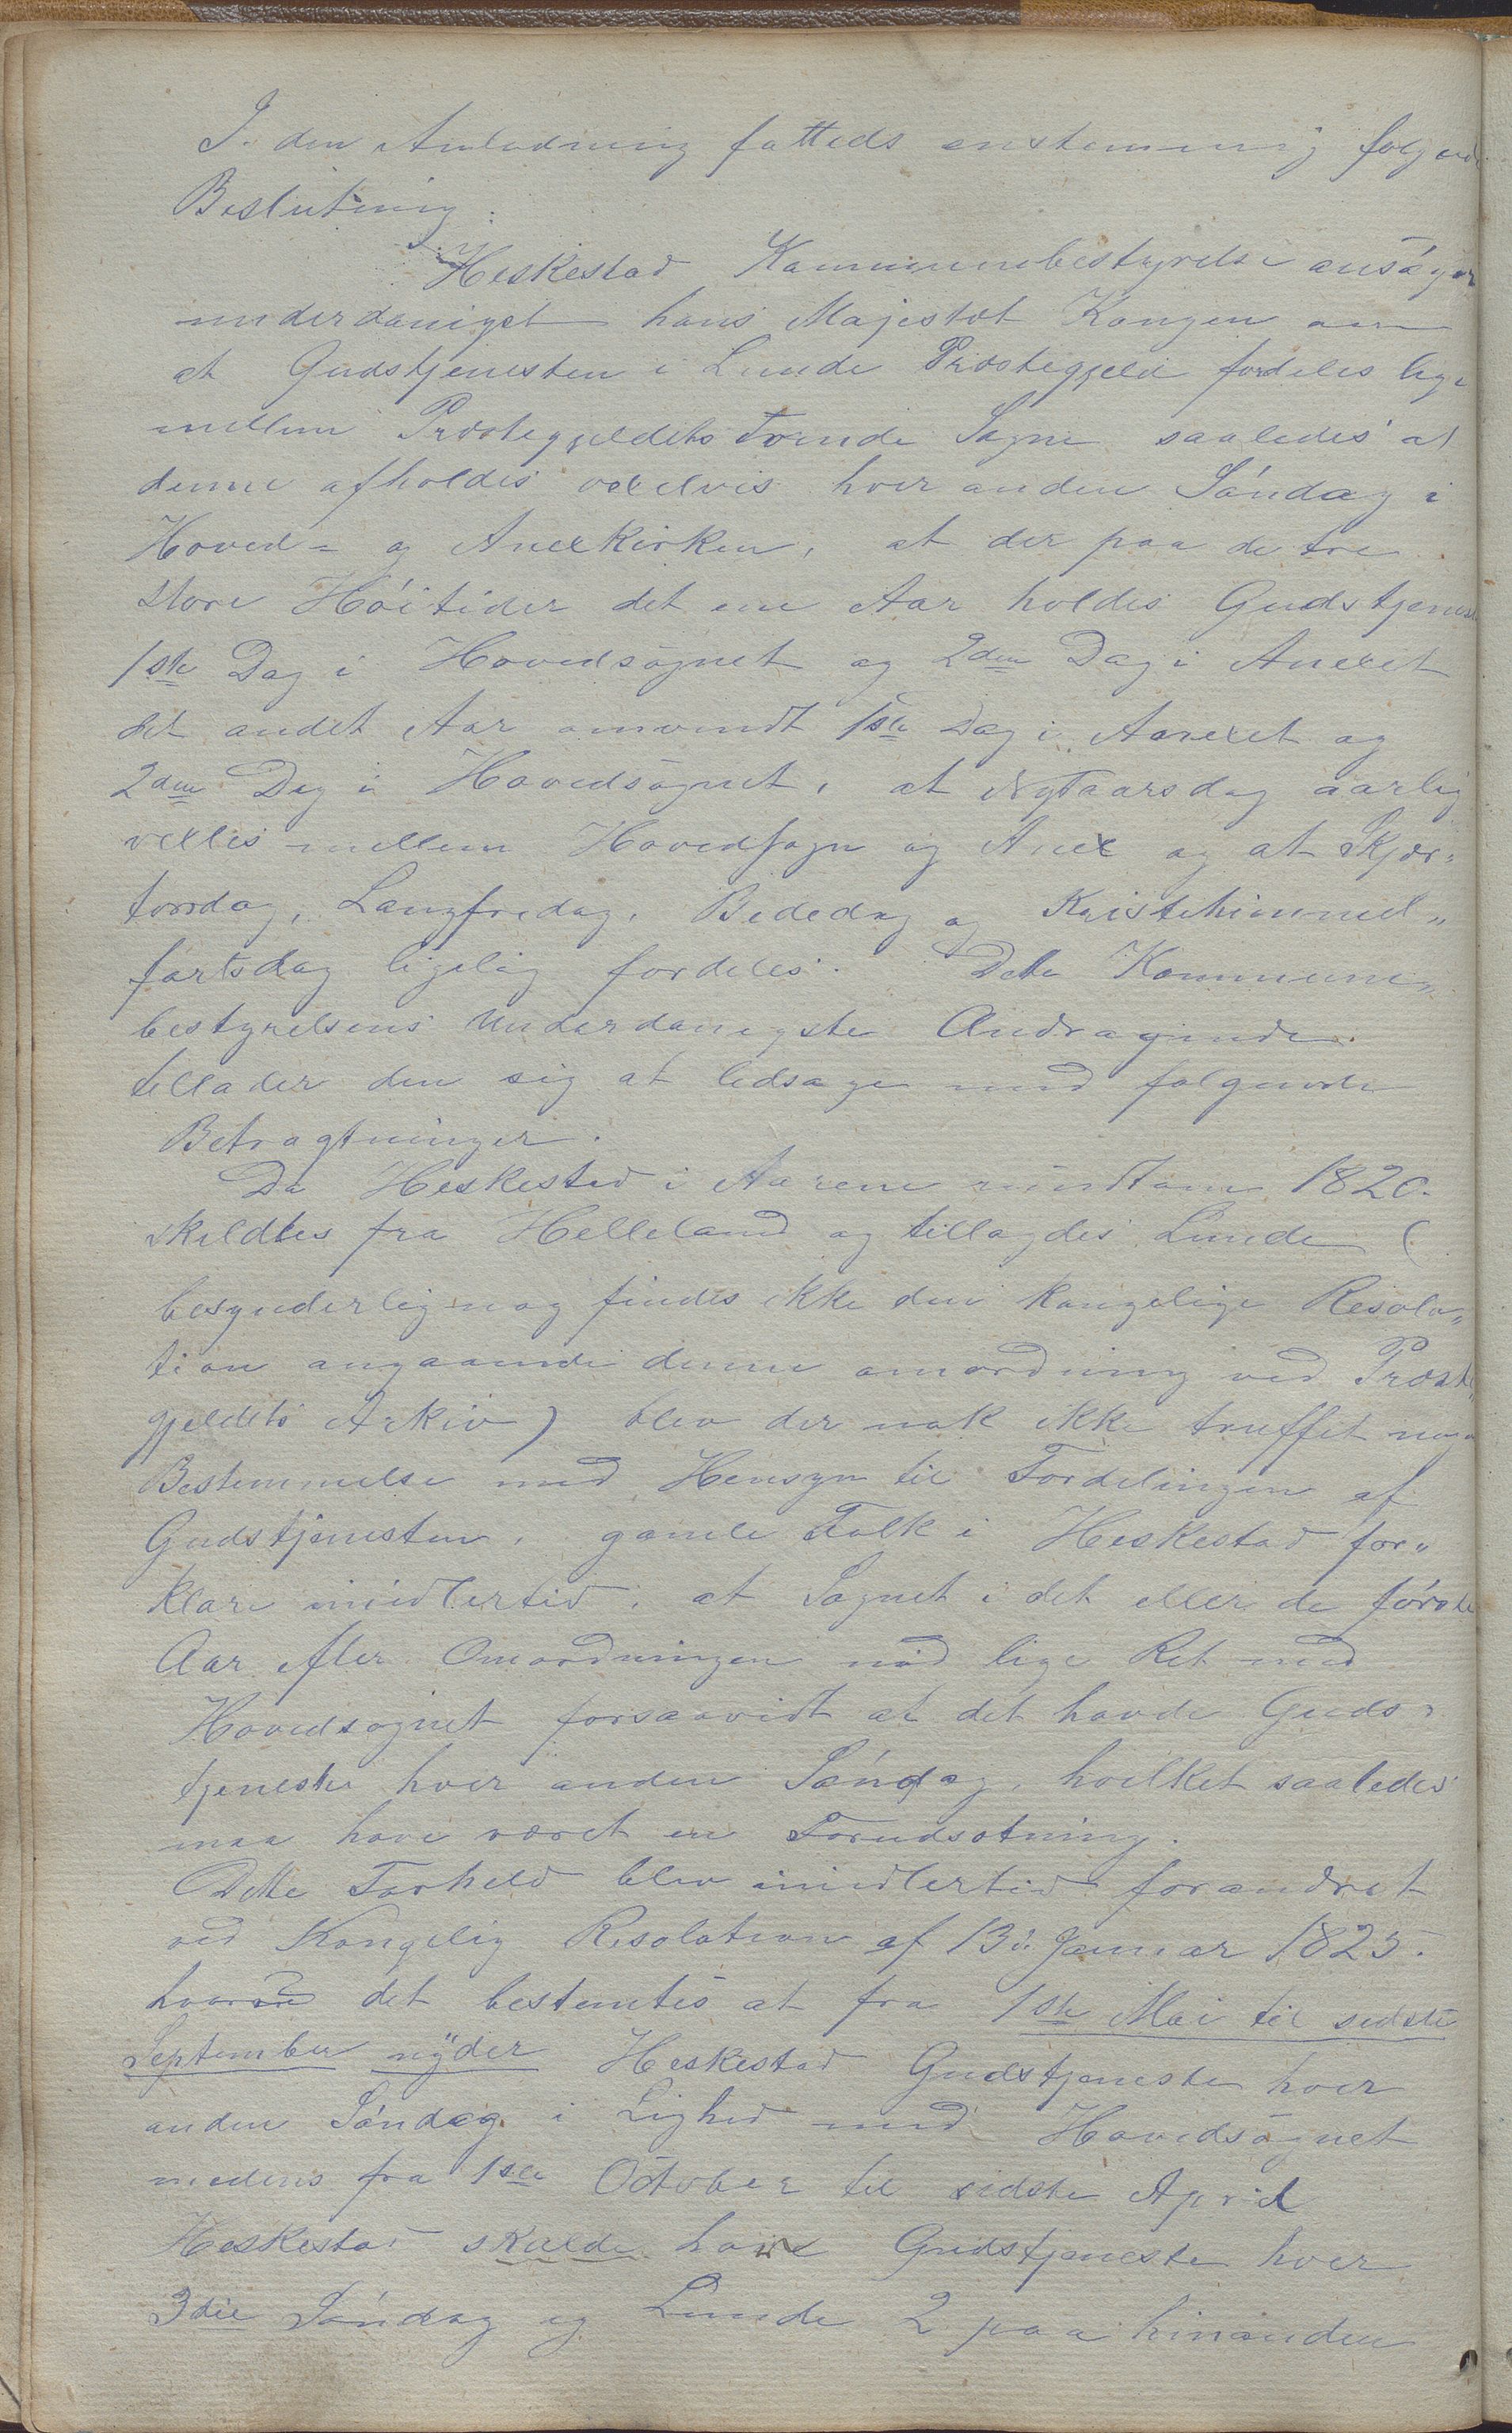 I den Anledning fattedes enstemmig følgende
Beslutning:
Heskestad Kommunebestyrelse ansøger
underdanigst hans Majestæt Kongen om
at Gudstjenesten i Lunde Præstegjeld fordeles lige
mellem Præstegjeldets tvende Sogne saaledes at
denne afholdes vexelvis hver anden Søndag i
Hoved- og Anexkirken, at der paa de tre
store Høitider det ene Aar holdes Gudstjeneste
1ste Dag i Hovedsognet og 2den Dag i Anexet
det andet Aar omvendt 1ste Dag i Annexet og
2den Dag i Hovedsognet, at Nytaarsdag aarlig
vexles mellem Hovedsogn og Anex og at Skjær„
torsdag, Langfredag, Bededag og Kristihimmel„
fartsdag ligelig fordeles. Dette Kommune„
bestyrelsens underdanigste Andragende
tillader den sig at ledsage med følgende
Betragtninger.
Da Heskestad i Aarene rundtom 1820.
skildtes fra Helleland og tillagdes Lunde (
besynderlig nog findes ikke den kongelige Resolu„
tion angaaende denne omordning ved Præste„
gjeldets Arkiv) blev der nok ikke truffet nogen
Bestemmelse med Hensyn til Fordelingen af
Gudstjenesten, gamle Folk i Heskestad for„
klare imidlertid, at Sognet i det eller de første
Aar efter Omordningen nød lige Ret med
Hovedsognet forsaavidt at det havde Guds„
tjeneste hver anden Søndag, hvilket saaledes
maa have været en Forudsætning.
Dette Forhold blev imidlertid forandret
ved Kongelig Resolution af 13de Januar 1825.
hvorved det bestemtes at fra 1ste Mai til sidste
September nyder Heskestad Gudstjeneste hver
anden Søndag i Lighed med Hovedsognet
medens fra 1ste October til sidste April
Heskestad skulde have Gudstjeneste hver
3die Søndag og Lunde 2 paa hinanden